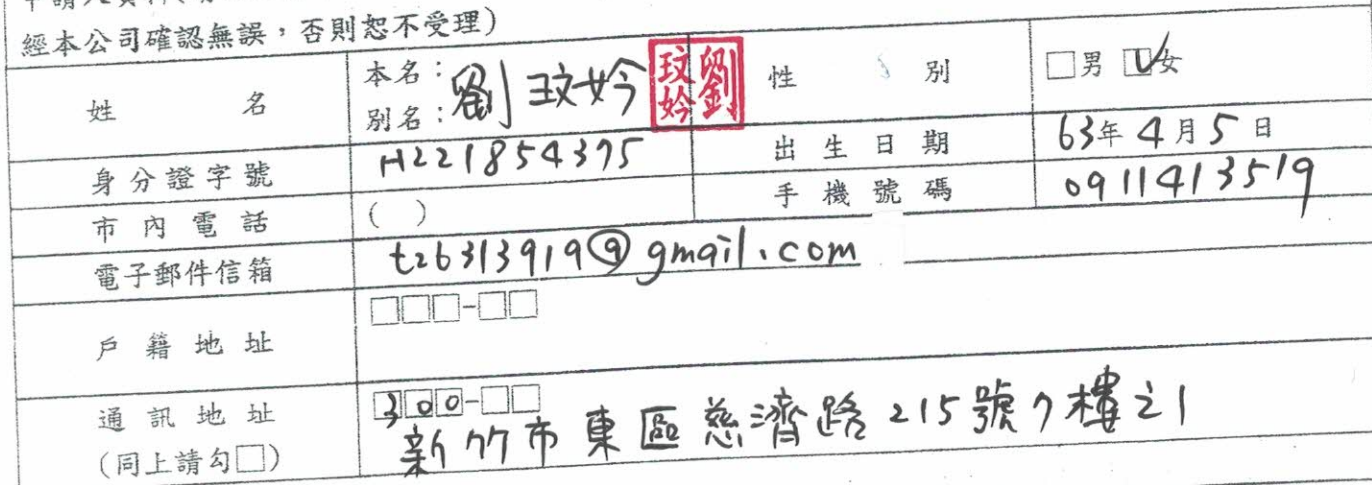 經本公司確認無誤，否則恕不受理)
姓 名 本名：劉玟妗 別名： 劉玟妗 性 別 □男 ☑女
身分證字號 H221854375 出生日期 63年4月5日
市內電話 ( ) 手機號碼 0911413519
電子郵件信箱 t26313919@gmail.com
戶籍地址 □□□-□□
通訊地址 300-□□
(同上請勾□) 新竹市東區慈濟路215號7樓之1